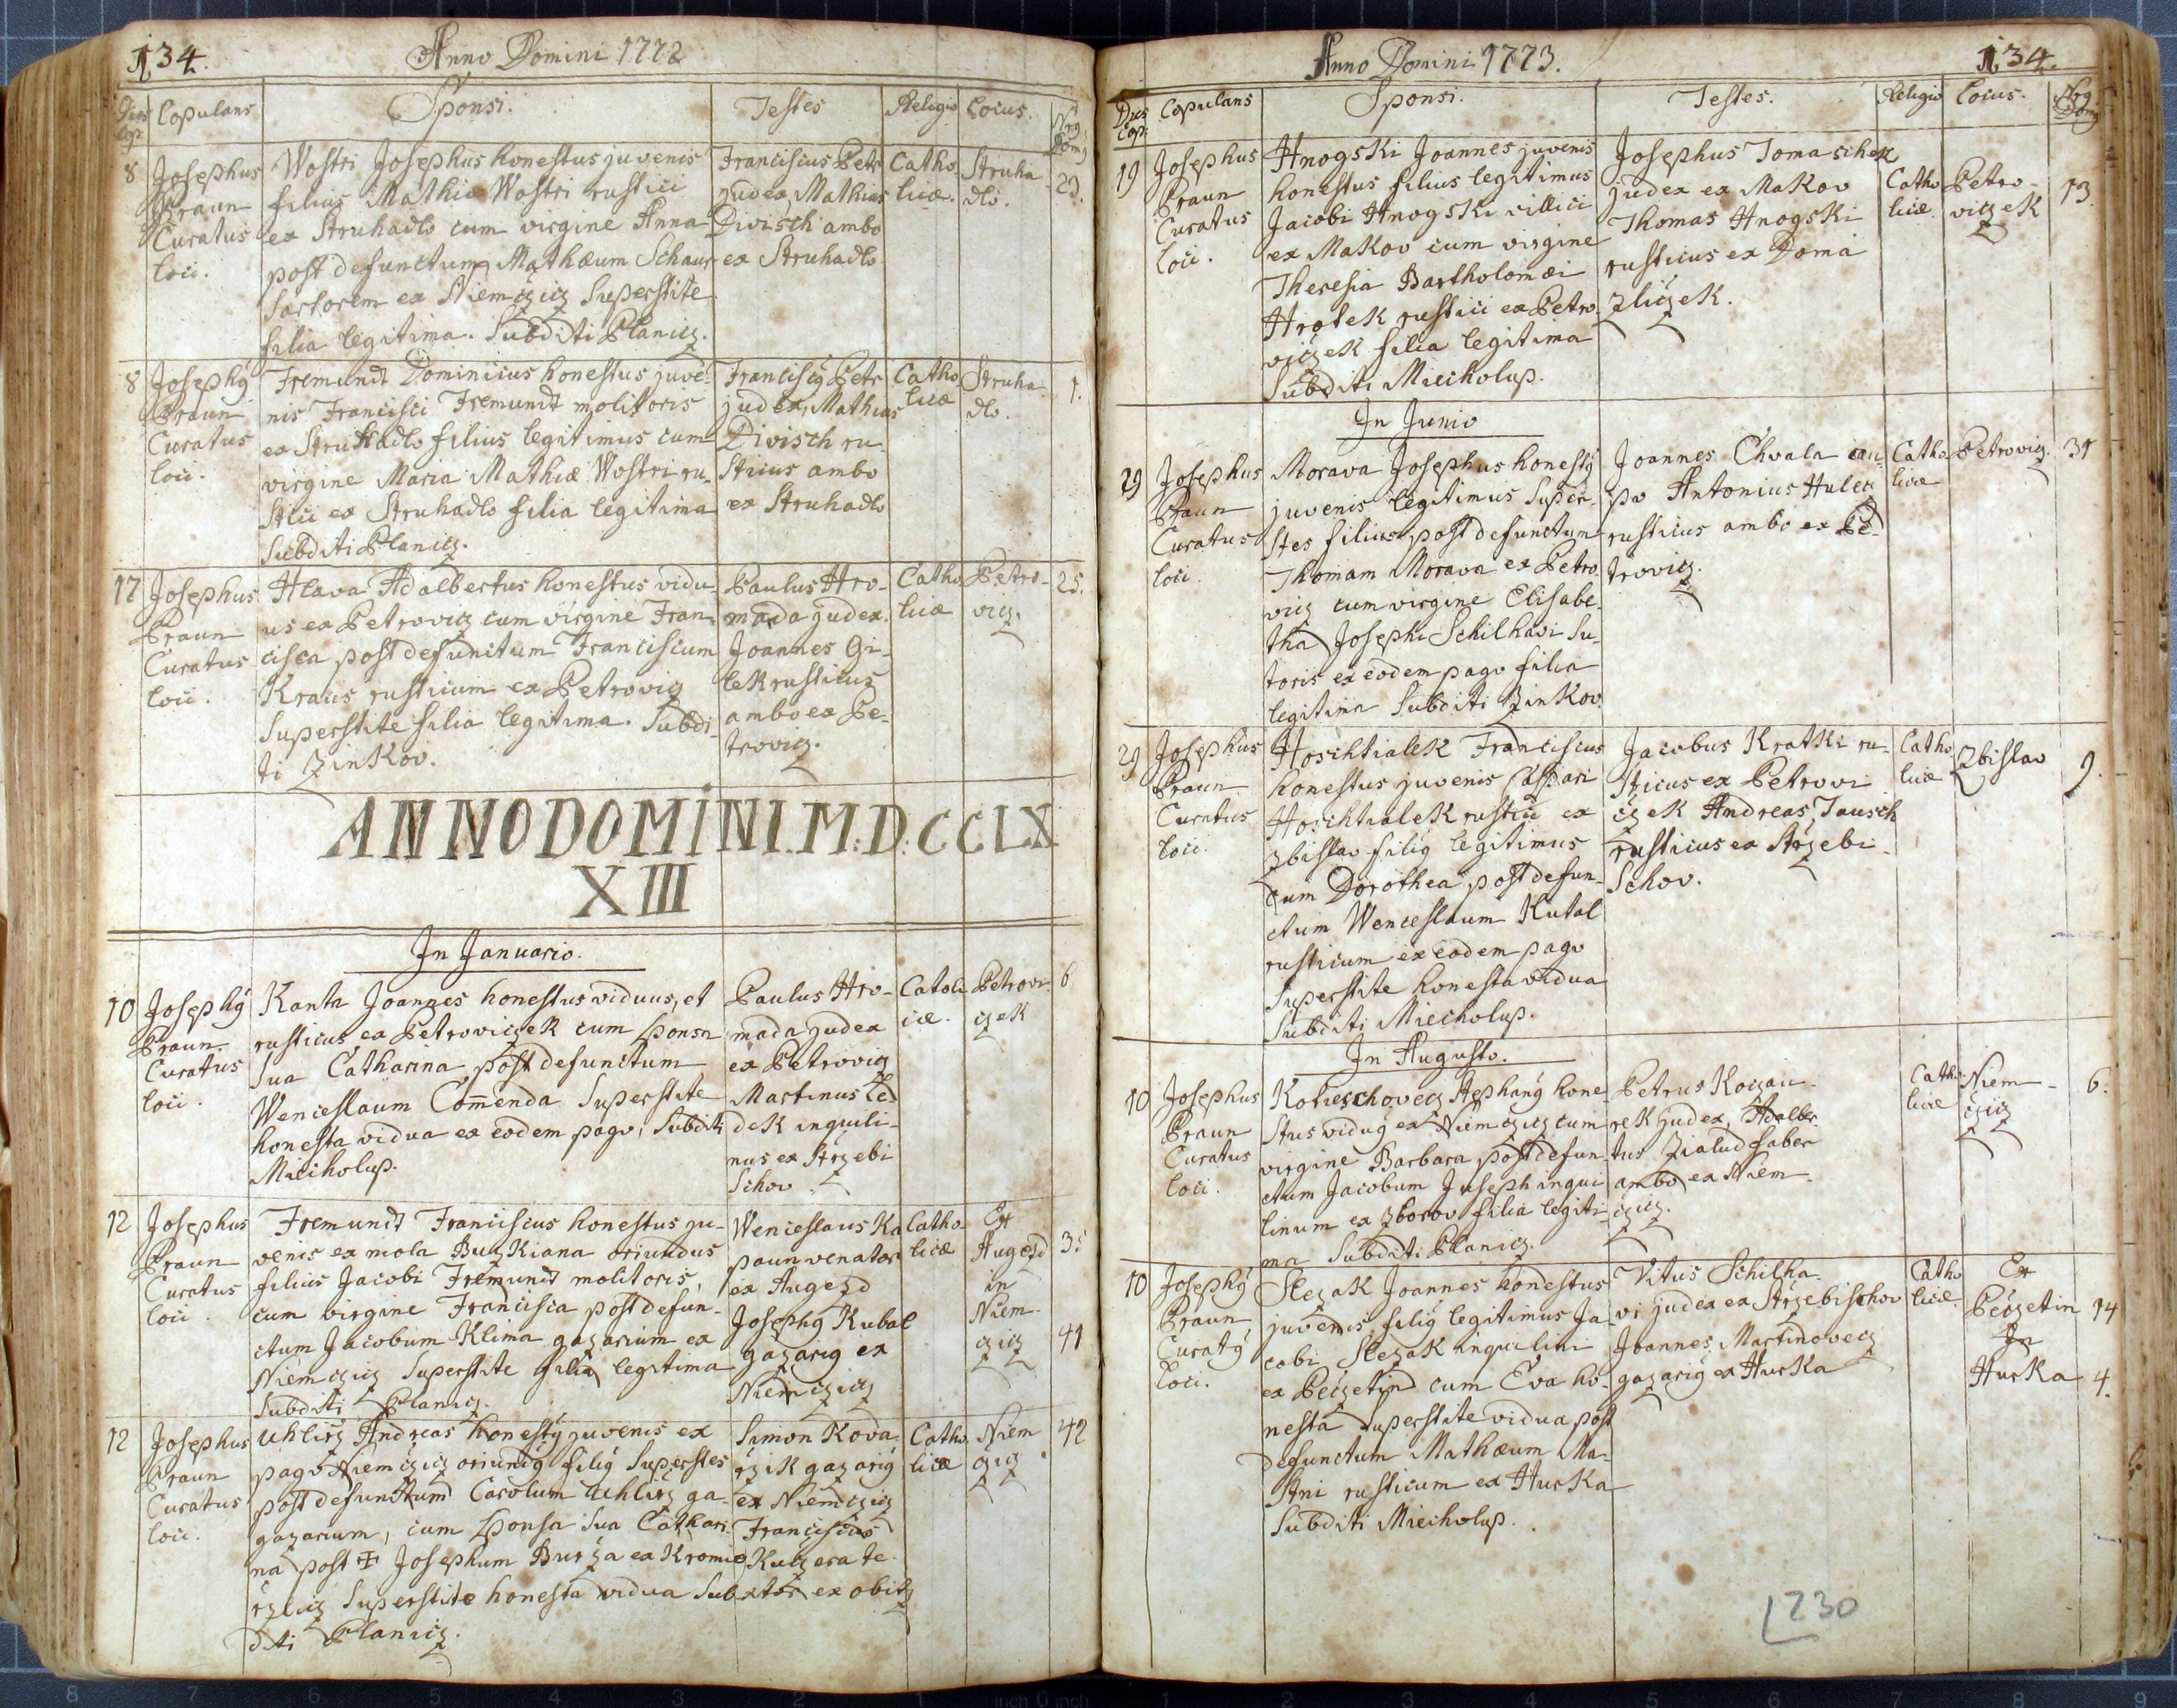 134. Anno Domini 1772
Dies Cop. Copulans Sponsi. Testes Religio Locus. Nrg Domg
8 Josephus Praun Curatus loci.
Wostri Josephus honestus juvenis
filius Mathiæ Wostri rustici
ex Struhadlo cum virgine Anna
post defunctum Mathæum Schaur
sartorem ex Niemczicz superstite
filia legitima. Subditi Planicz.
Franciscus Petr
judex, Mathias
Divisch ambo
ex Struhadlo
Catho
licæ.
Struha
dlo.
29.
8 Josephg Praun Curatus loci.
Fremundt Dominicus honestus juve-
nis Francisci Fremundt molitoris
ex Struhadlo filius legitimus cum
virgine Maria Mathiæ Wostri ru-
stici ex Struhadlo filia legitima
Subditi Planicz.
Franciscg Petr
judex, Mathias
Divisch ru-
sticus ambo
ex Struhadlo
Catho
licæ
Struha
dlo.
1.
17 Josephus Praun Curatus loci.
Hlava Adalbertus honestus vidu-
us ex Petrovicz cum virgine Fran-
cisca post defunctum Franciscum
Kraus rusticum ex Petrovicz
superstite filia legitima. Subdi-
ti Zinkov.
Paulus Hro-
mada judex.
Joannes Gi-
lek rusticus
ambo ex Pe-
trovicz.
Catho
licæ
Petro-
vicz.
25.
ANNO DOMINI. M:D:CCLX
XIII
In Januario.
10 Josephg Praun Curatus loci.
Kanta Joannes honestus viduus, et
rusticus ex Petroviczek cum sponsa
sua Catharina post defunctum
Wenceslaum Comenda superstite
honesta vidua ex eodem pago, Subditi
Miecholup.
Paulus Hro-
mada judex
ex Petrovicz
Martinus Led
dek inquili-
nus ex Strzebi
schov
Catoli
cæ.
Petrovi-
czek
6
12 Josephus Praun Curatus loci.
Fremundt Franciscus honestus ju-
venis ex mola Buzkiana oriundus
filius Jacobi Fremundt molitoris,
cum virgine Francisca post defun-
ctum Jacobum Klima gazarium ex
Niemczicz superstite filia legitima
Subditi Planicz.
Wenceslaus Ka
paun venator
ex Augezd
Josephg Kubal
gazarig ex
Niemczicz
Catho
licæ
Ex
Augezd
in
Niem-
czicz
35
41
12 Josephus Praun Curatus loci.
Uhlirz Andreas honestg juvenis ex
pago Niemczicz oriundg filig superstes
post defunctum Carolum Uhlirz ga-
gazarium, cum sponsa sua Cathari-
na post ✠ Josephum Burza ex Kromie
rzlicz superstite honesta vidua Sub
diti Planicz.
Simon Kova-
rzik gazarig
ex Niemczicz
Franciscus
Kutzera te-
xtor ex obitz
Catho
licæ
Niem
czicz
42
Anno Domini 1773. 134.
Dies Cop: Copulans Sponsi. Testes. Religio Locus. Nrg. Domg
19 Josephus Praun Curatus loci.
Hnogski Joannes juvenis
honestus filius legitimus
Jacobi Hnogski villici
ex Makov cum virgine
Theresia Bartholomæi
Hrotek rustici ex Petro-
viczek filia legitima
Subditi Miecholup.
Josephus Tomaschek
judex ex Makov
Thomas Hnogski
rusticus ex Doma
zliczek.
Catho
licæ.
Petro-
viczek
13.
In Junio
29 Josephus Praun Curatus loci.
Morava Josephus honestg
juvenis legitimus super-
stes filius post defunctum
Thomam Morava ex Petro
vicz cum virgine Elisabe-
tha Josephi Schilhavi su-
toris ex eodem pago filia
legitima Subditi Zinkov.
Joannes Chvala cau-
po Antonius Hulek
rusticus ambo ex Pe-
trovicz.
Catho
licæ
Petrovicz.
31
29 Josephus Praun Curatus loci.
Hoschtialek Franciscus
honestus juvenis Caspari
Hoschtialek rustici ex
Zbislav filig legitimus
cum Dorothea post defun-
ctum Wenceslaum Kutal
rusticum ex eodem pago
superstite honesta vidua
Subditi Miecholup.
Jacobus Kratki ru-
sticus ex Petrovi
czek Andreas Tausch
rusticus ex Strzebi-
schov.
Catho
licæ
Zbislav
9.
In Augusto.
10 Josephus Praun Curatus loci.
Koheschovecz Stephang hone
stus vidug ex Niemczicz cum
virgine Barbara post defun-
ctum Jacobum Juseph inqui
linum ex Zborov filia legiti-
ma Subditi Planicz.
Petrus Koczau-
rek judex, Adalber-
tus Zialud faber
ambo ex Niem-
czicz.
Catho
licæ
Niem-
czicz
6.
10 Josephg Praun Curatg loci.
Slezak Joannes hondestus
juvenis filig legitimus Ja-
cobi Slezak inquilini
ex Peczetin cum Eva ho-
nesta superstite vidua post
defunctum Mathæum Ma-
stni rusticum ex Hurka
Subditi Miecholup.
Vitus Schilha-
vi judex ex Strzebischov
Joannes Martinovecz
gazarig ex Hurka
Catho
licæ.
Ex
Peczetin
In
Hurka
14
4.
1230